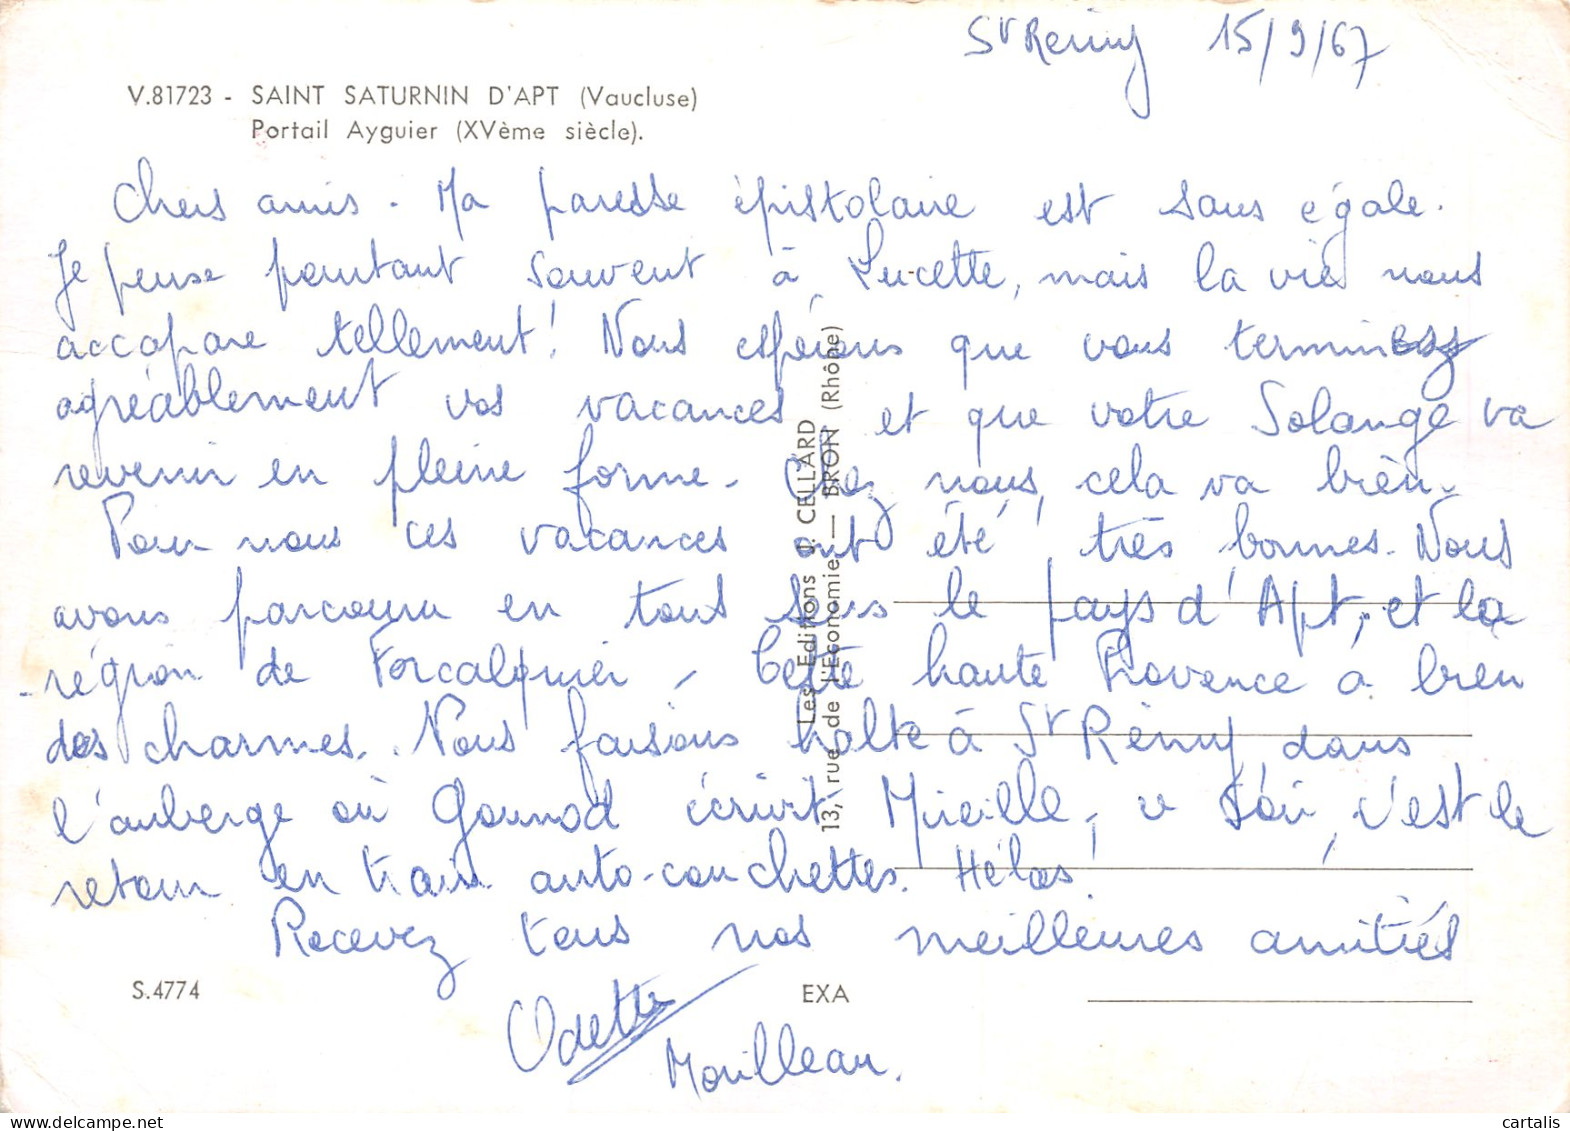 St Rémy 15/9/67
V.81723 - SAINT SATURNIN D'APT (Vaucluse)
Portail Ayguier (XVème siècle).
Chers amis. Ma paresse épistolaire est sans égale.
Je pense pourtant souvent à Lucette, mais la vie nous
accapare tellement! Nous espérons que vous terminez
agréablement vos vacances et que votre Solange va
revenir en pleine forme. Chez nous, cela va bien.
Pour nous ces vacances ont été très bonnes. Nous
avons parcouru en tous sens le pays d'Apt, et la
région de Forcalquier. Cette haute Provence a bien
des charmes. Nous faisons halte à St Rémy dans
l'auberge où Gounod écrivit Mireille, ce soir, c'est le
retour en train auto-couchettes. Hélas!
Recevez tous nos meilleures amitiés
Odette
Mouilleau.
Les Editions J. CELLARD
13, rue de l'Economie — BRON (Rhône)
S.4774
EXA
cartalis